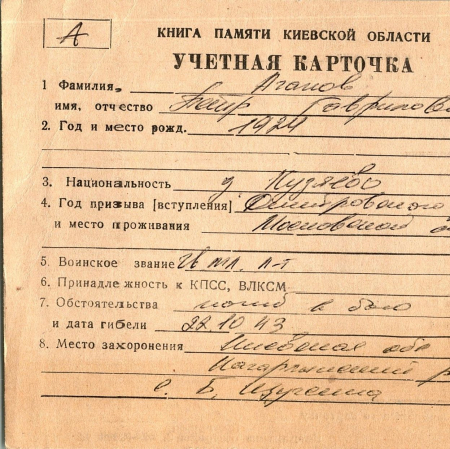 А
КНИГА ПАМЯТИ КИЕВСКОЙ ОБЛАСТИ
УЧЕТНАЯ КАРТОЧКА
1 Фамилия, Агапов
имя, отчество Петр Гаврилов
2. Год и место рожд. 1924
3. Национальность д Кузяево
4. Год призыва [вступления] Дмитровского
и место проживания Московской о
5. Воинское звание гв мл. л-т
6. Принадлежность к КПСС, ВЛКСМ
7. Обстоятельства погиб в бою
и дата гибели 22.10.43
8. Место захоронения Киевская обл
Кагарлыкский р
с. Б.